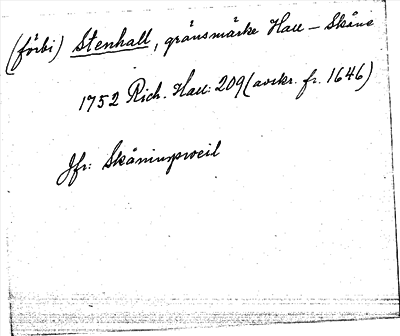 (förbi) Stenhall, gränsmärke Hall – Skåne
1752 Rich. Hall: 209 (avskr. fr. 1646)
Jfr: Skånings